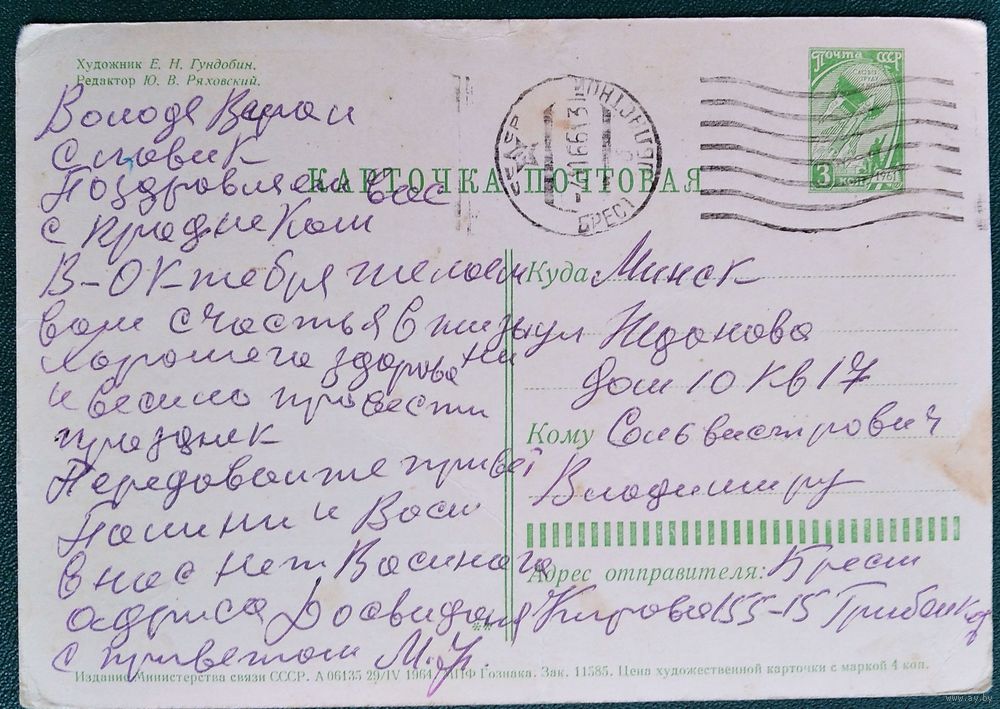 Художник Е. Н. Гундобин.
Редактор Ю. В. Ряховский.
Почта СССР
3 КОП
1961
КАРТОЧКА ПОЧТОВАЯ
БРЕСТ
Володя
Славик
Поздравляем вас
с праднеком
В-Октебря желаем
вам счастья в жизни
хорошего здоровя
и весило провести
празднек
Передовайте привет
Полини и Васи
в нас нет Васиного
адриса Досвиданя
с приветом М.У.
Куда Минск
ул Жданова
Дом 10 кв 17
Кому Сильвистрович
Владимиру
Адрес отправителя: Брест
Кирова 155-15
Издание Министерства связи СССР. А 06135 29/IV 1964. МПФ Гознака. Зак. 11585. Цена художественной карточки с маркой 4 коп.
www.ay.by